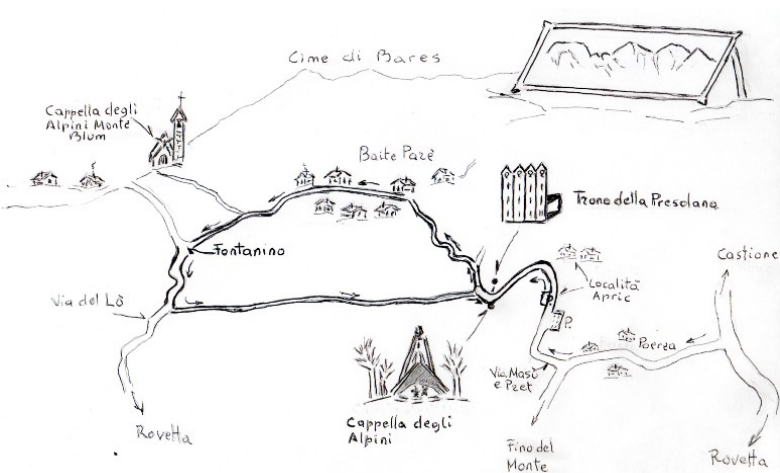 Cime di Bares
Cappella degli
Alpini Monte
Blum
Baite Parè
Trono della Presolana
Fontanino
Castione
Località
Apric
Via del Lò
P.
Poerza
Via Masi
e Pret
Cappella degli
Alpini
Rovetta
Fino del
Monte
Rovetta